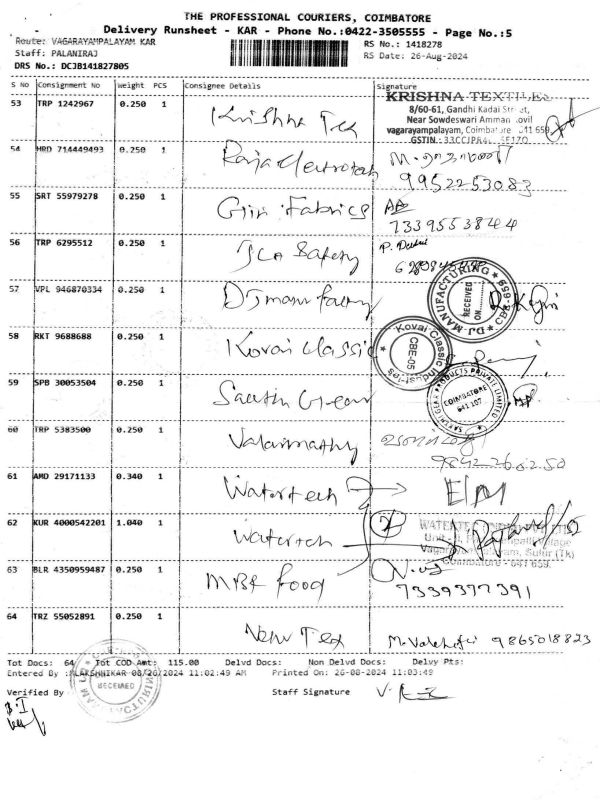 THE PROFESSIONAL COURIERS, COIMBATORE
Delivery Runsheet - KAR - Phone No.:0422-3505555 - Page No.:5
Route: VAGARAYAMPALAYAM KAR
RS No.: 1418278
Staff: PALANIRAJ
RS Date: 26-Aug-2024
DRS No.: DCJB141827805
S No Consignment No Weight PCS Consignee Details Signature
53 TRP 1242967 0.250 1 Krishna Tex
KRISHNA TEXTILES
8/60-61, Gandhi Kadai Street,
Near Sowdeswari Amman Kovil
vagarayampalayam, Coimbatore 641 659
54 HRD 714449493 0.250 1 Raja electrotech
9952253083
55 SRT 55979278 0.250 1 Giri Fabrics
73395538444
56 TRP 6295512 0.250 1 Safety
57 VPL 946870334 0.250 1 DJ manufactry
DJ MANUFACTURING CBE-659
RECEIVED ON
58 RKT 9688688 0.250 1 Kovai classic
Kovai Classic Industries
CBE-05
59 SPB 30053504 0.250 1 Sakthi Gear
SAKTHI GEAR PRODUCTS PRIVATE LIMITED
COIMBATORE
641 107
60 TRP 5383500 0.250 1 Valarmathy
9842260250
61 AMD 29171133 0.340 1 Watertech
62 KUR 4000542201 1.040 1 Watertech
Vagarayampalayam, Sulur (Tk)
Coimbatore - 641 659
63 BLR 4350959487 0.250 1 MBR food
7339377391
64 TRZ 55052891 0.250 1 New Tex
9865018823
Tot Docs: 64 Tot COD Amt: 115.00 Delvd Docs: Non Delvd Docs: Delvy Pts:
Entered By :ALAKSHNIKAR 08/26/2024 11:02:49 AM Printed On: 26-08-2024 11:03:49
RECEIVED
Verified By Staff Signature